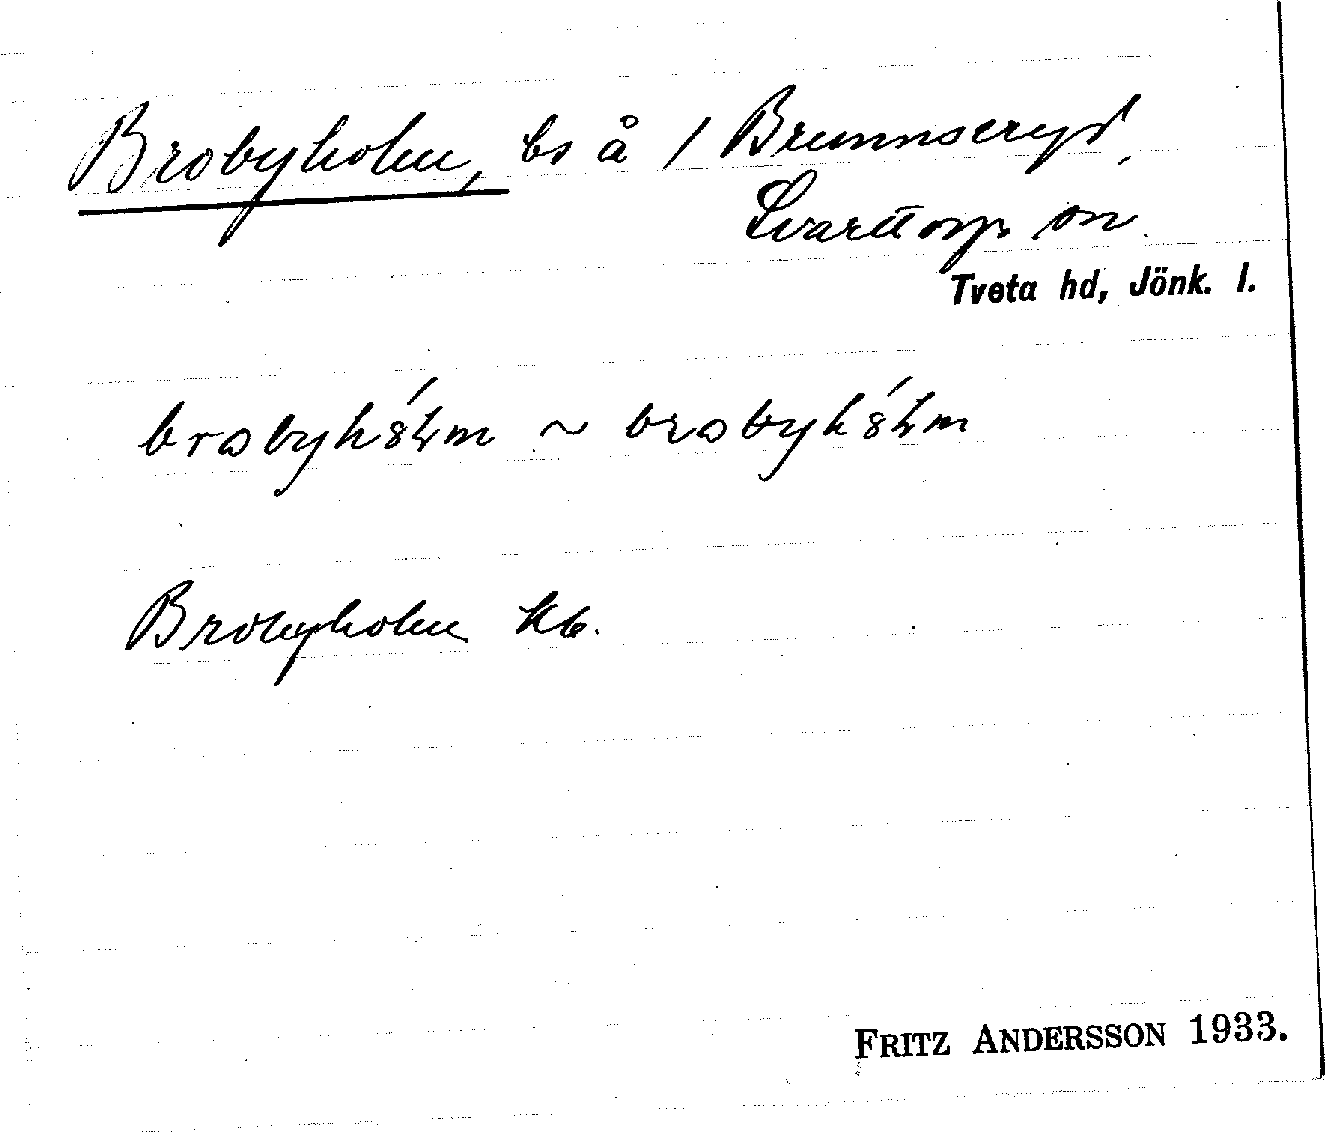 Brobyholm, bs å 1 Brunnseryd,
Svarttorp sn
Tveta hd, Jönk. l.
brobyhólm ~ brobyhólm
Brobyholm kb.
FRITZ ANDERSSON 1933.